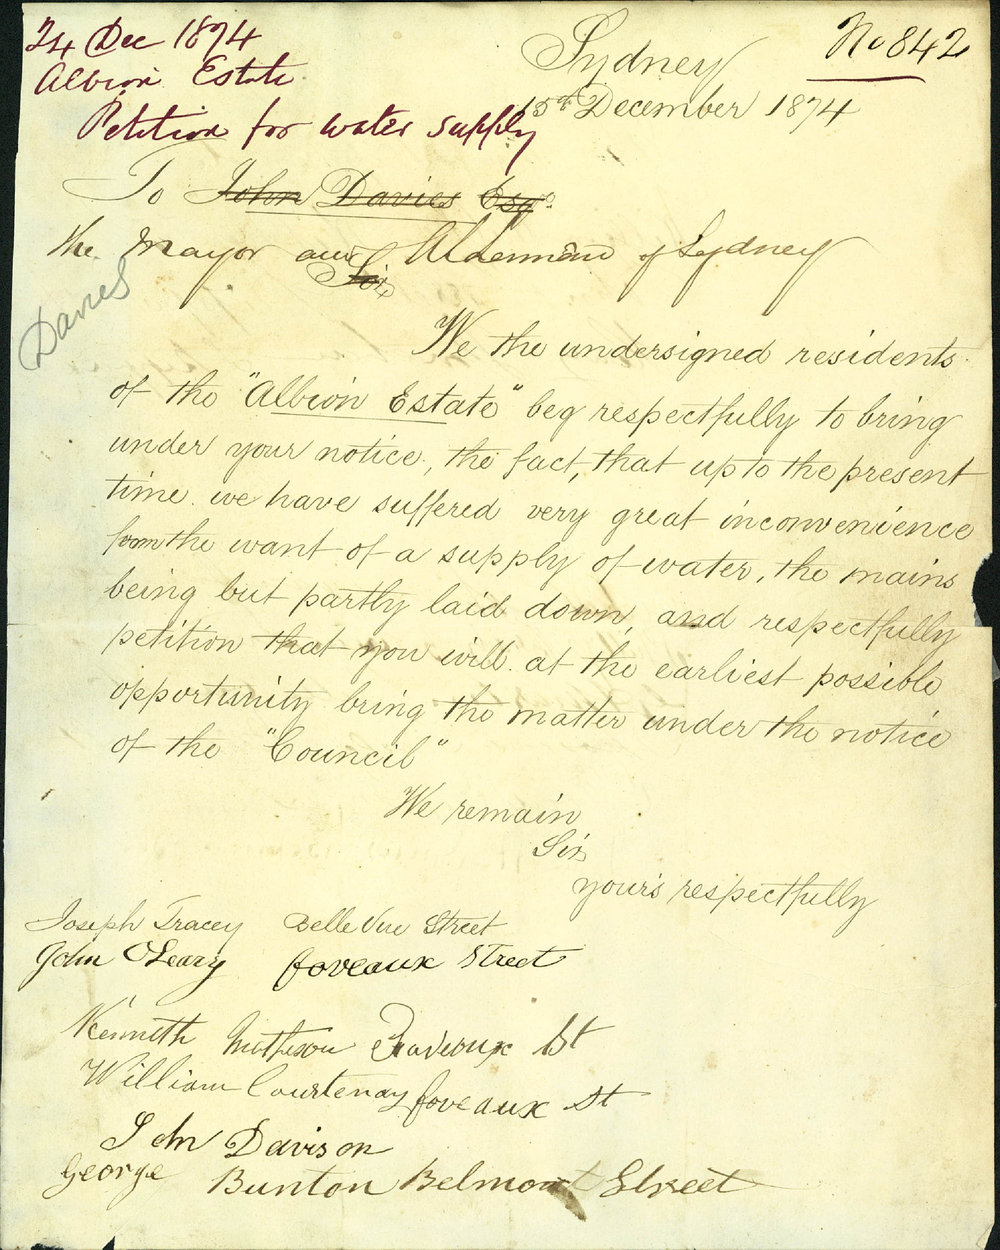 24 Dec 1874
Albion Estate
Petition for water supply
No 842
Sydney
15th December 1874
To John Davies Esqre
the Mayor and Aldermen of Sydney
Sir,
Davies
We the undersigned residents
of the "Albion Estate" beg respectfully to bring
under your notice, the fact, that up to the present
time we have suffered very great inconvenience
from the want of a supply of water, the mains
being but partly laid down, and respectfully
petition that you will at the earliest possible
opportunity bring the matter under the notice
of the "Council"
We remain
Sir,
yours respectfully
Joseph Tracey Belle Vue Street
John O'Leary foveaux Street
Kenneth Matheson Foveoux St
William Courtenay foveaux St
John Davison
George Bunton Belmont Street